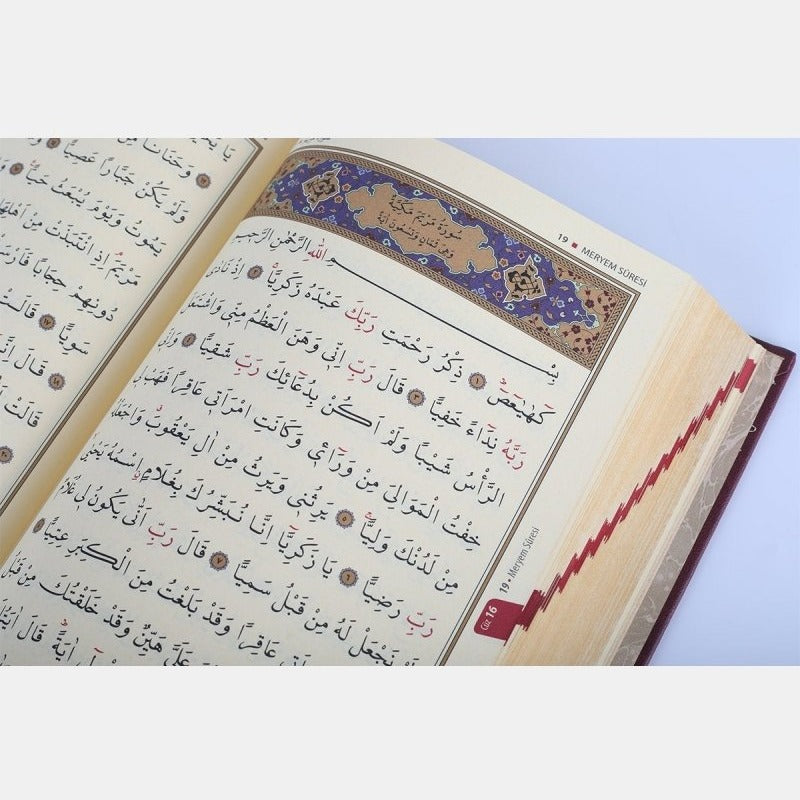 19 ▪ MERYEM SÛRESİ
سُورَةُ مَرْيَمَ مَكِّيَّةٌ
وَهِىَ ثَمَانٍ وَتِسْعُونَ اٰيَةً
بِسْــــــمِ اللّٰهِ الرَّحْمٰنِ الرَّح۪يمِ
كٓهٰيٰعٓصٓ ﴿١﴾ ذِكْرُ رَحْمَتِ رَبِّكَ عَبْدَهُ زَكَرِيَّا ﴿٢﴾ اِذْ نَادٰى
رَبَّهُ نِدَٓاءً خَفِيًّا ﴿٣﴾ قَالَ رَبِّ اِنّ۪ي وَهَنَ الْعَظْمُ مِنّ۪ي وَاشْتَعَلَ
الرَّأْسُ شَيْبًا وَلَمْ اَكُنْ بِدُعَٓائِكَ رَبِّ شَقِيًّا ﴿٤﴾ وَاِنّ۪ي
خِفْتُ الْمَوَالِيَ مِنْ وَرَٓاء۪ي وَكَانَتِ امْرَاَت۪ي عَاقِرًا فَهَبْ ل۪ي
مِنْ لَدُنْكَ وَلِيًّا ﴿٥﴾ يَرِثُن۪ي وَيَرِثُ مِنْ اٰلِ يَعْقُوبَ وَاجْعَلْهُ
رَبِّ رَضِيًّا ﴿٦﴾ يَا زَكَرِيَّٓا اِنَّا نُبَشِّرُكَ بِغُلَامٍ اسْمُهُ يَحْيٰى
لَمْ نَجْعَلْ لَهُ مِنْ قَبْلُ سَمِيًّا ﴿٧﴾ قَالَ رَبِّ اَنّٰى يَكُونُ ل۪ي غُلَامٌ
عَاقِرًا وَقَدْ بَلَغْتُ مِنَ الْكِبَرِ عِتِيًّا ﴿٨﴾
عَلَيَّ هَيِّنٌ وَقَدْ خَلَقْتُكَ مِنْ قَبْلُ
اٰيَةً قَالَ اٰيَتُكَ
Cüz 16
19 • Meryem Sûresi
وَحَنَانًا
وَلَمْ يَكُنْ جَبَّارًا عَصِيًّا
يَمُوتُ وَيَوْمَ يُبْعَثُ حَيًّا
مَرْيَمَ اِذِ انْتَبَذَتْ مِنْ اَهْلِهَا
دُونِهِمْ حِجَابًا فَاَرْسَلْنَا
سَوِيًّا ﴿١٧﴾ قَالَتْ
قَالَ اِنَّمَا
قَالَتْ